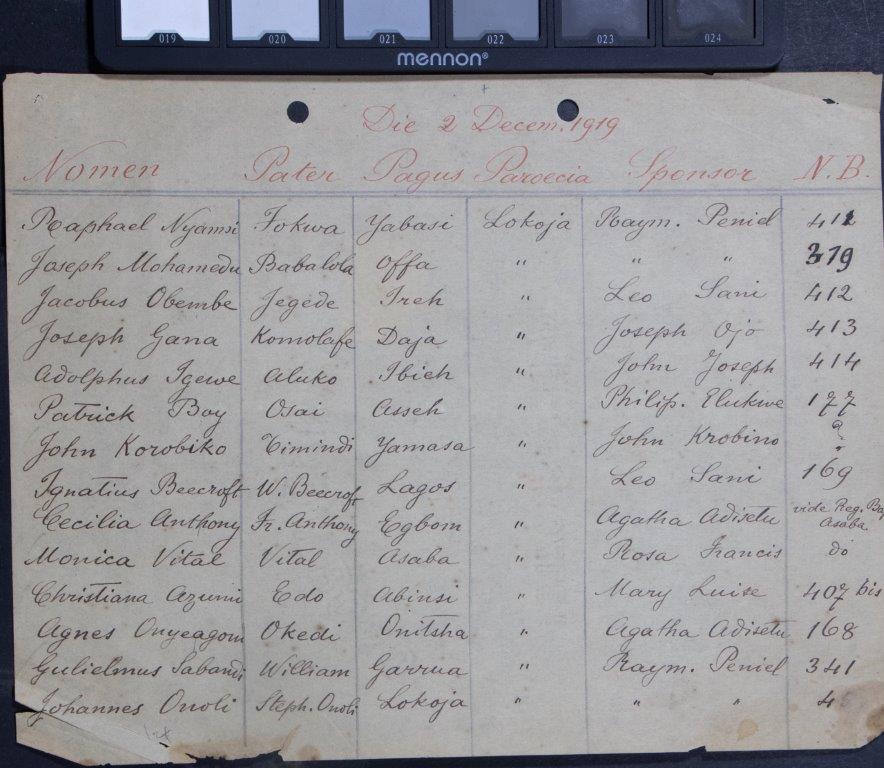 019 020 021 022 023 024
mennon®
Die 2 Decem. 1919
Nomen Pater Pagus Paroecia Sponsor N.B.
Raphael Nyamsi Fokwa Yabasi Lokoja Raym. Peniel 411
Joseph Mohamedu Babalola Offa " " " 379
Jacobus Obembe Jegede Ireh " Leo Sani 412
Joseph Gana Komolafe Daja " Joseph Ojo 413
Adolphus Igewe Aluko Ibieh " John Joseph 414
Patrick Boy Osai Asseh " Philip. Elukwe 177
John Korobiko Timindi Yamasa " John Krobino ?
Ignatius Beecroft W. Beecroft Lagos " Leo Sani 169
Cecilia Anthony Fr. Anthony Egbom " Agatha Adisetu vide Reg. Bap
Asaba
Monica Vital Vital Asaba " Rosa Francis do
Christiana Azumi Edo Abinsi " Mary Luise 407 bis
Agnes Onyeagom Okedi Onitsha " Agatha Adisetu 168
Gulielmus Sabandi William Garrua " Raym. Peniel 341
Johannes Onoli Steph. Onoli Lokoja " " " 4